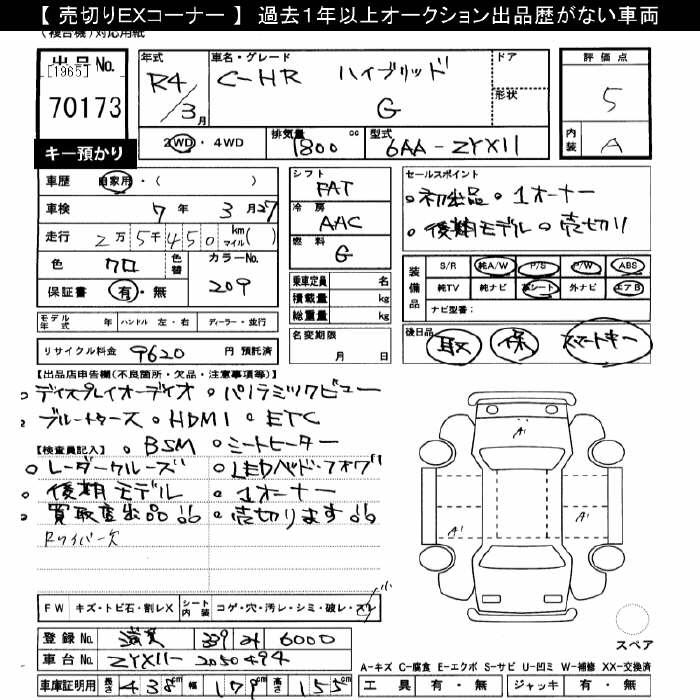 【 売切りEXコーナー 】 過去１年以上オークション出品歴がない車両
(複合機)対応用紙
出品No.
[1965]
70173
キー預かり
年式
R4/3月
車名・グレード
C-HR ハイブリッド
G
ドア
形状
2WD・4WD
排気量 1800 cc
型式 6AA-ZYX11
評価点
5
内装 A
車歴 自家用・( )
車検 7年 3月27
走行 2万5千450 km マイル( )
色 クロ
色替
カラーNo. 209
保証書 有・無
シフト
FAT
冷房
AAC
燃料
G
乗車定員 名
積載量 kg
総重量 kg
セールスポイント
・初出品・1オーナー
・後期モデル・売切り
装備品
S/R 純A/W P/S P/W ABS
純TV 純ナビ 革シート 外ナビ エアB
ナビ型番：
モデル年式 年 ハンドル 左・右 ディーラー・並行
名変期限
月 日
後日品
取 保 スマートキー
リサイクル料金 9620 円 預託済
【出品店申告欄(不良箇所・欠品・注意事項等)】
○ディスプレイオーディオ ○パノラミックビュー
○ブルートゥース ○HDMI ○ETC
【検査員記入】 ○BSM ○シートヒーター
○レーダークルーズ ○LEDヘッド・フォグ
○後期モデル ○1オーナー
○買取直出品!! ○売切ります!!
Rワイパー欠
A1
A1
A1
FW キズ・トビ石・割レX
シート内装 コゲ・穴・汚レ・シミ・破レ・スレ
登録No. 滋賀 339 6000
車台No. ZYX11- 2050494
車庫証明用 長さ 438cm 幅 179cm 高さ 155cm
スペア
A-キズ C-腐食 E-エクボ S-サビ U-凹ミ W-補修 XX-交換済
工具 有・無 ジャッキ 有・無